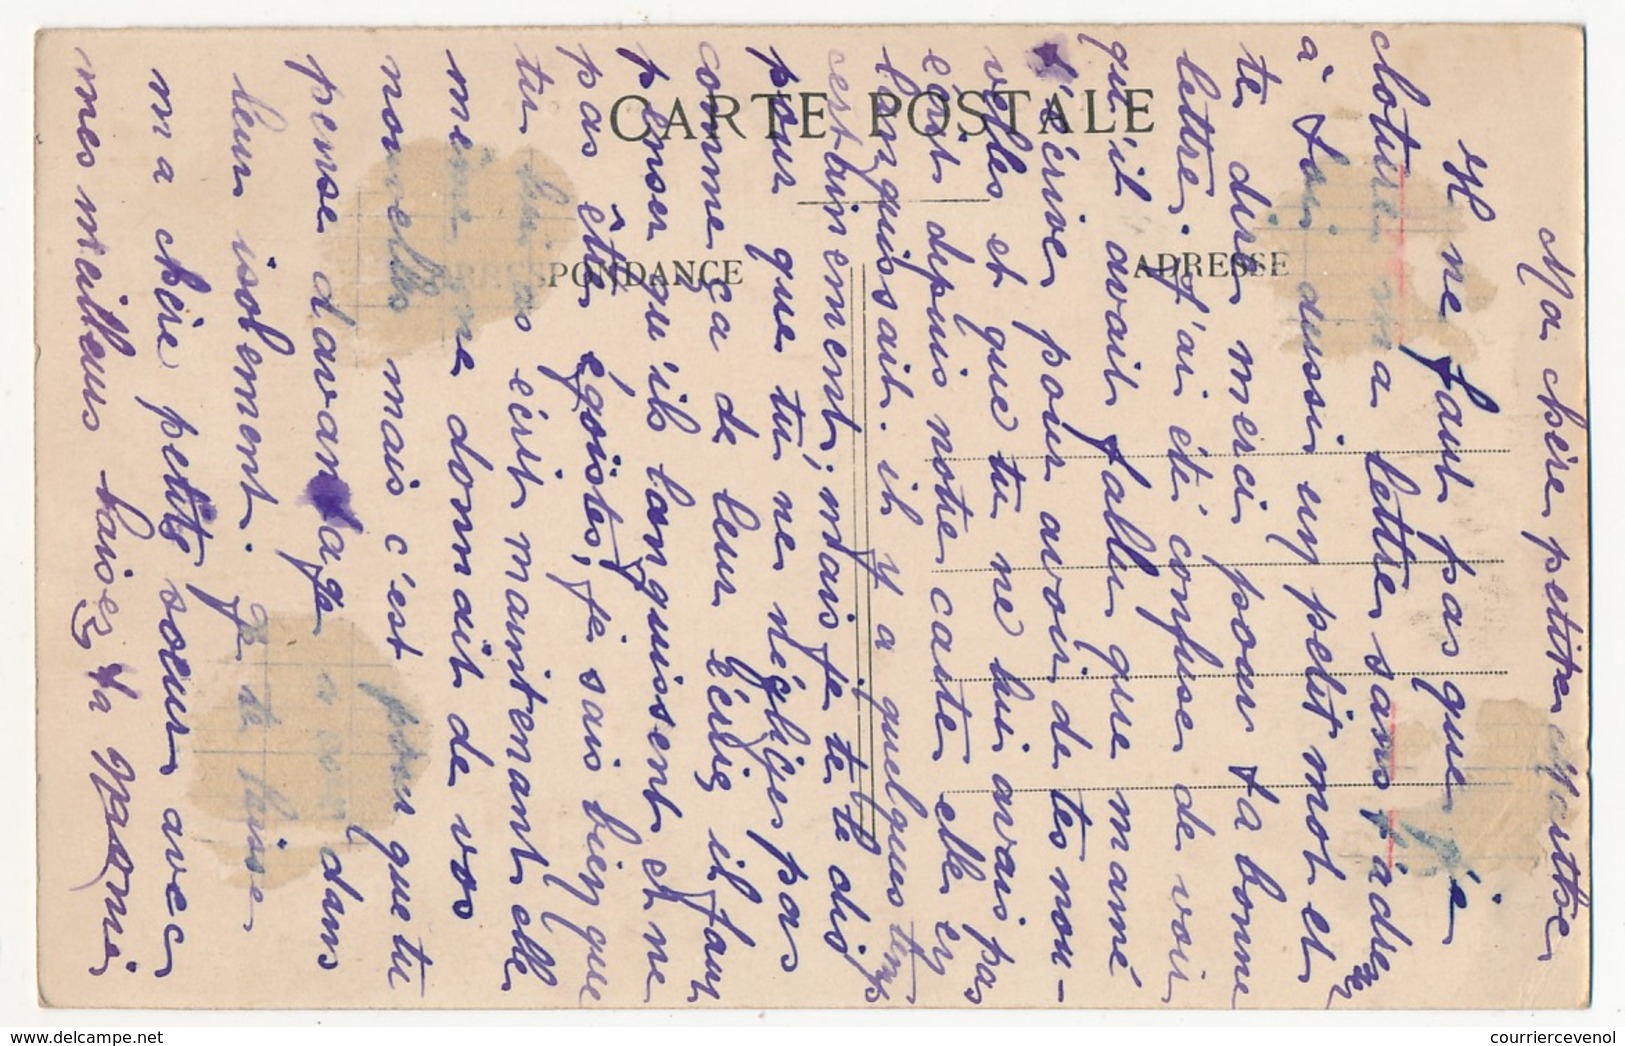 CARTE POSTALE
CORRESPONDANCE
ADRESSE
Ma chère petite
Il ne faut pas que je
cloture ma lettre sans t'adresser
à toi aussi un petit mot et
te dire merci pour ta bonne
lettre. J'ai été confuse de voir
qu'il avait fallu que mamé
t'écrive pour avoir de tes nou-
velles et que tu ne lui avais pas
écrit depuis notre carte elle en
languissait. il y a quelques temps
certainement, mais je te le dis
pour que tu ne négliges pas
comme ça de leur écrire il faut
penser qu'ils languissent et ne
pas être égoïstes, je sais bien que
tu lui as écrit maintenant elle
même me donnait de vos
nouvelles mais c'est pour que tu
pense davantage à eux dans
leur isolement. Je te laisse
ma chère petite soeur avec
mes meilleurs baisers ta
courriercevenol | www.delcampe.net